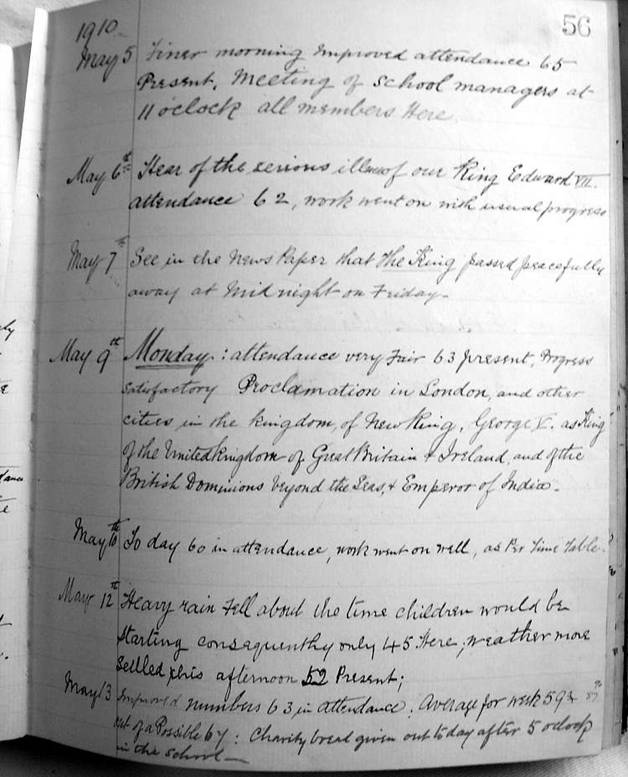 56
1910
May 5 Finer morning Improved attendance 65
Present, Meeting of School managers at
11 o'clock all members Here.
May 6th Hear of the serious illness of our King Edward VII.
attendance 62, work went on with usual progress
May 7th See in the News Paper that the King passed peacefully
away at Midnight on Friday.
May 9th Monday: attendance very Fair 63 present, Progress
Satisfactory Proclamation in London, and other
cities in the kingdom, of New King, George V. as King
of the United Kingdom of Great Britain & Ireland, and of the
British Dominions beyond the Seas, & Emperor of India.
May 10th To day 60 in attendance, work went on well, as Per Time Table.
May 12th Heavy rain Fell about the time children would be
starting consequenthy only 45 Here; weather more
Settled this afternoon 52 Present;
May 13 Improved numbers 63 in attendance. Average for week 59
out of a Possible 67: Charity bread given out today after 5 oclock
in the School